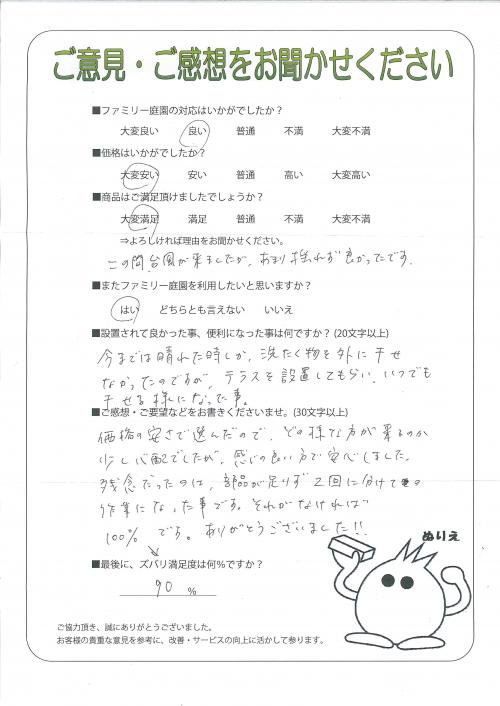 ご意見・ご感想をお聞かせください
■ファミリー庭園の対応はいかがでしたか？
大変良い 良い 普通 不満 大変不満
■価格はいかがでしたか？
大変安い 安い 普通 高い 大変高い
■商品はご満足頂けましたでしょうか？
大変満足 満足 普通 不満 大変不満
⇒よろしければ理由をお聞かせください。
この間、台風が来ましたが、あまり揺れず良かったです。
■またファミリー庭園を利用したいと思いますか？
はい どちらとも言えない いいえ
■設置されて良かった事、便利になった事は何ですか？(20文字以上)
今までは晴れた時しか、洗たく物を外に干せ
なかったのですが、テラスを設置してもらい、いつでも
干せる様になった事。
■ご感想・ご要望などをお書きくださいませ。(30文字以上)
価格の安さで選んだので、どの様な方が来るのか
少し心配でしたが、感じの良い方で安心しました。
残念だったのは、部品が足りず2回に分けての
作業になった事です。それがなければ
100%です。ありがとうございました!!
■最後に、ズバリ満足度は何%ですか？
90 %
ぬりえ
ご協力頂き、誠にありがとうございました。
お客様の貴重な意見を参考に、改善・サービスの向上に活かして参ります。